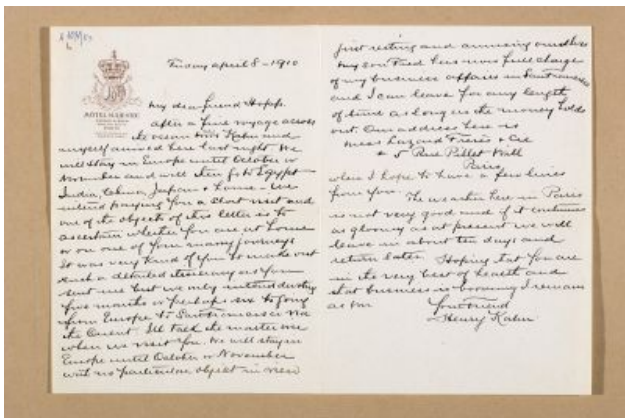 Friday April 8 - 1910
HOTEL MEURICE
PARIS
My dear friend Hopp.
After a fine voyage across
the ocean Mrs Kahn and
myself arrived here last night. We
will stay in Europe until October or
November and will then go to Egypt -
India, China, Japan & home - We
intend paying you a short visit and
one of the objects of this letter is to
ascertain whether you are at home
or on one of your many journeys
It was very kind of you to make out
such a detailed itinerary as you
sent me but we only intend devoting
five months or perhaps six to going
from Europe to San Francisco via
the Orient. Ill talk the matter over
when we visit you. We will stay in
Europe until October or November
with no particular object in view
just resting and amusing ourselves
My son Fred has now full charge
of my business affairs in San Francisco
and I can leave for any length
of time as long as the money holds
out. Our address here is
Mess Lazard Freres & Cie
5 Rue Pillet Will
Paris
where I hope to have a few lines
from you. The weather here in Paris
is not very good and if it continues
as gloomy as at present we will
leave in about ten days and
return later. Hoping that you are
in the very best of health and
that business is booming I remain
as ever
Your friend
Henry Kahn